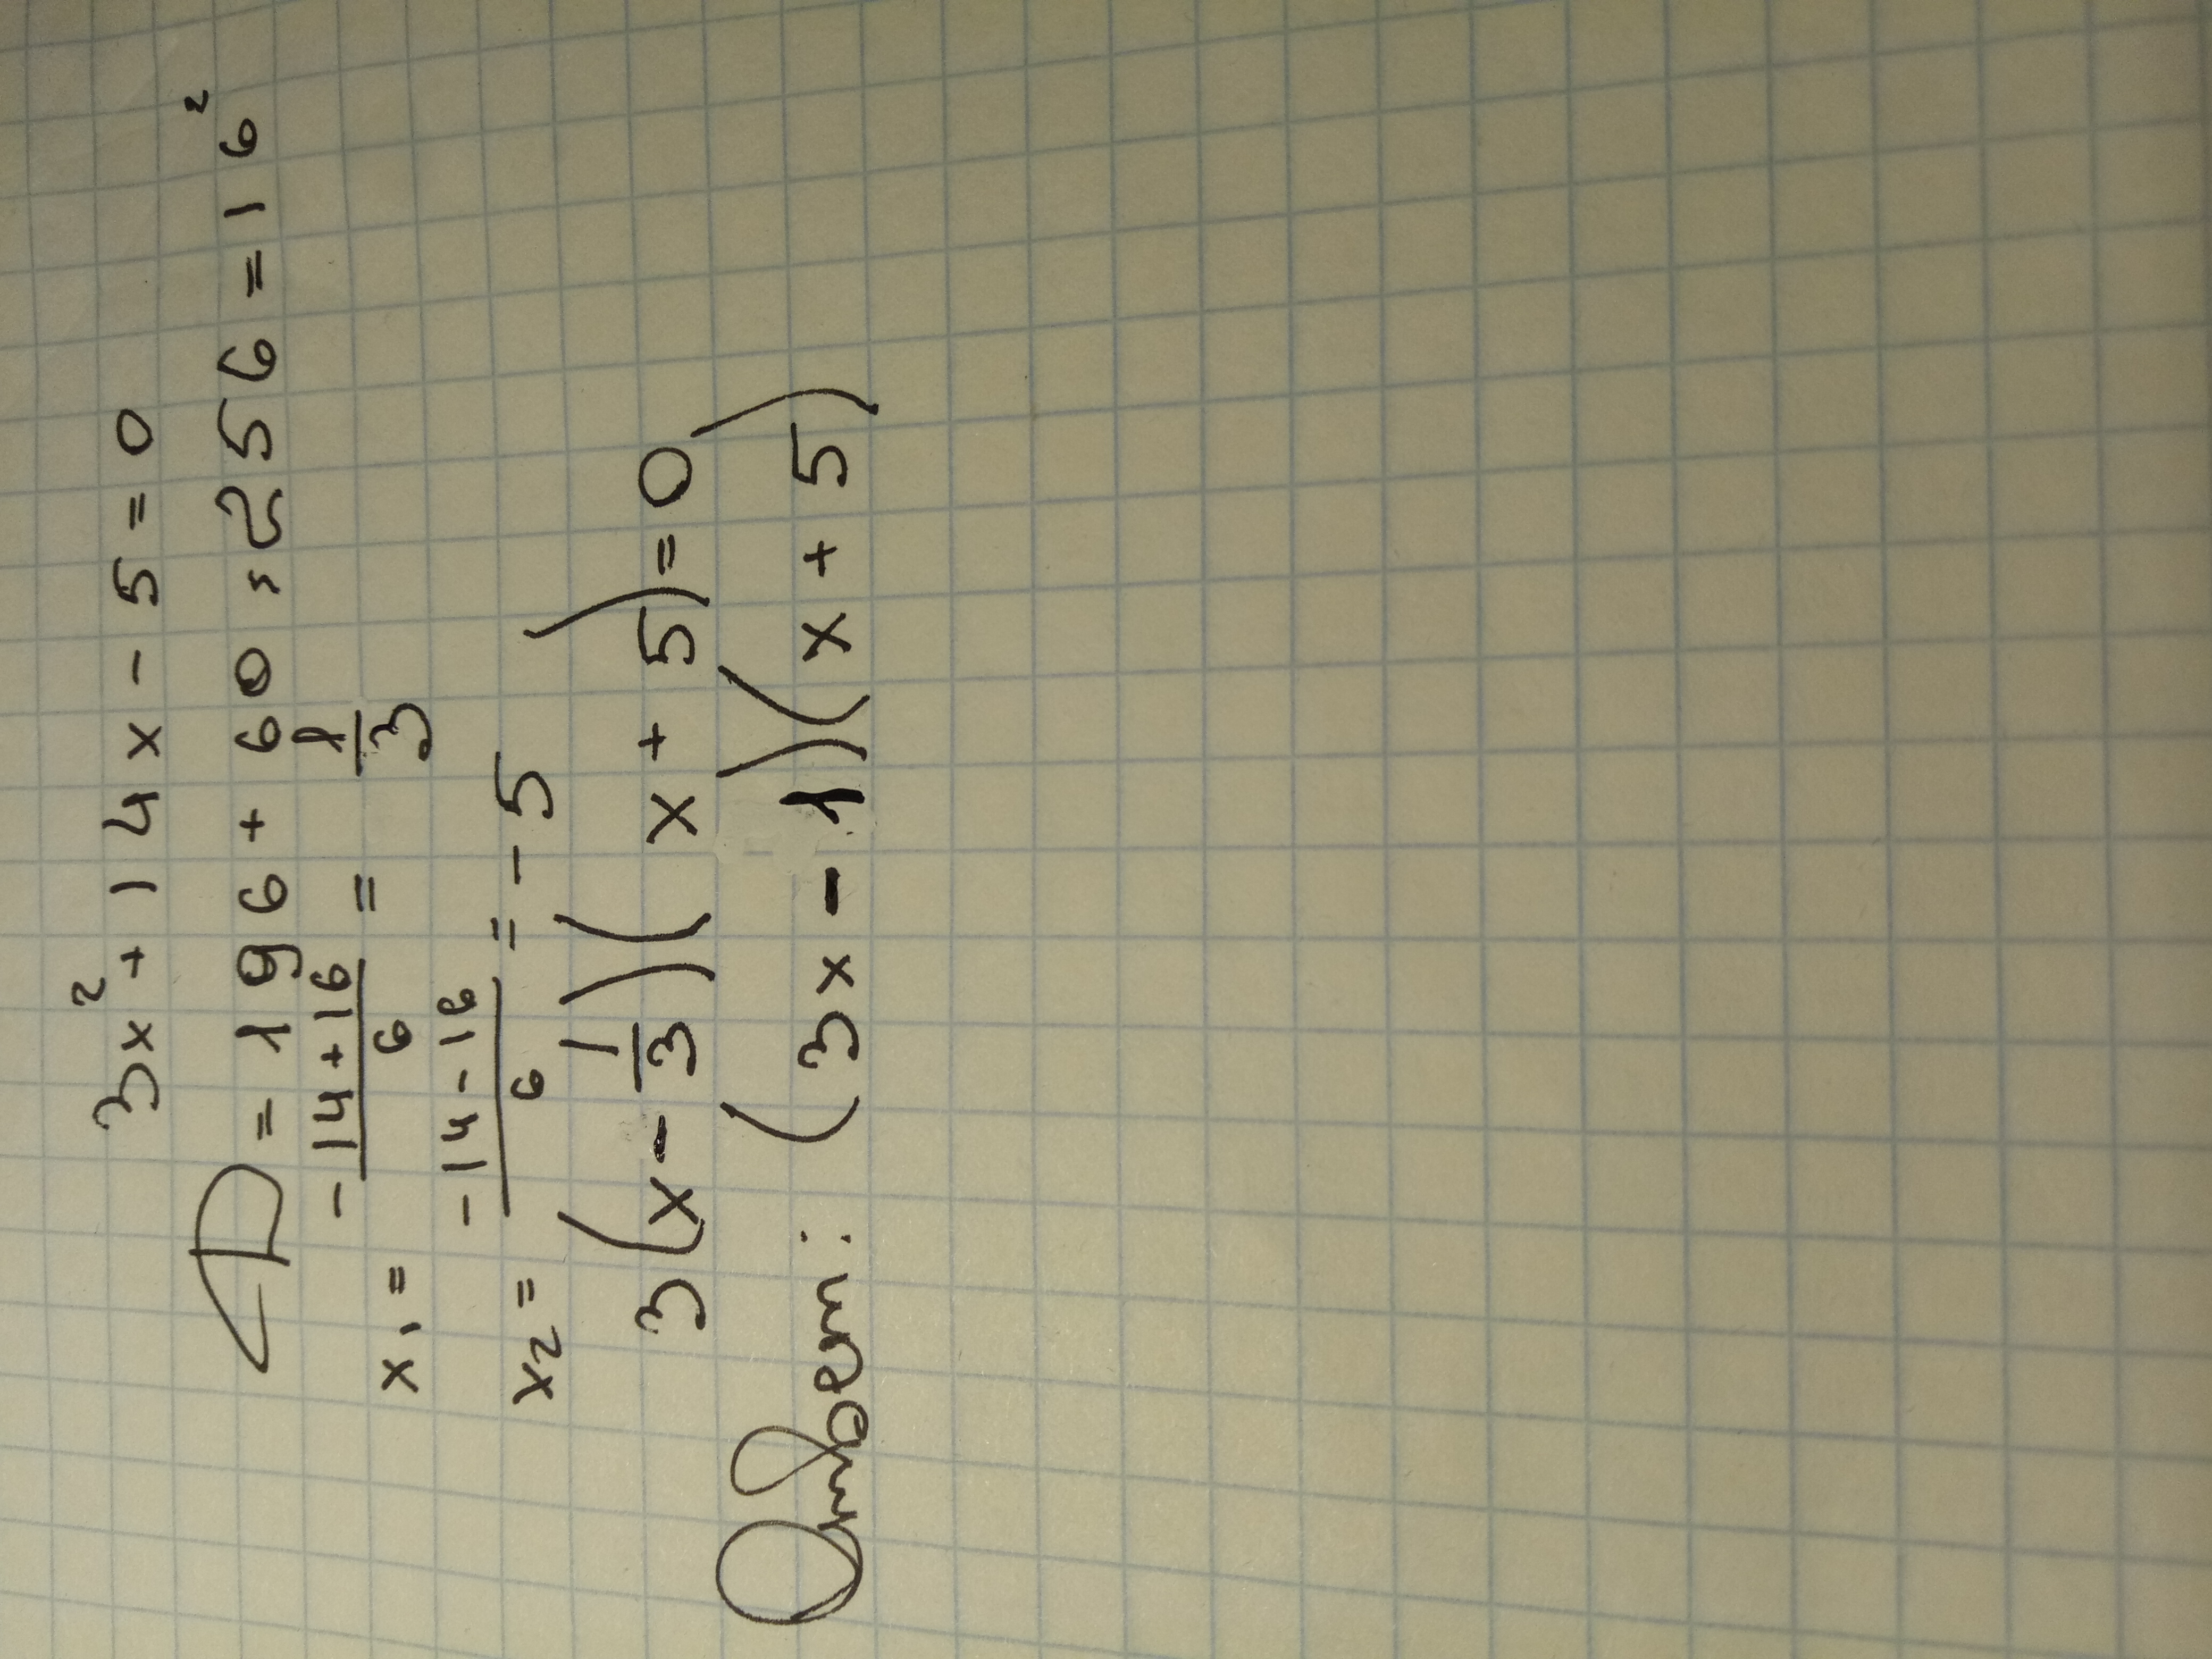 3x² + 14x - 5 = 0
D = 196 + 60 = 256 = 16²
x₁ = (-14 + 16)/6 = 1/3
x₂ = (-14 - 16)/6 = -5
3(x - 1/3)(x + 5) = 0
Ответ: (3x - 1)(x + 5)